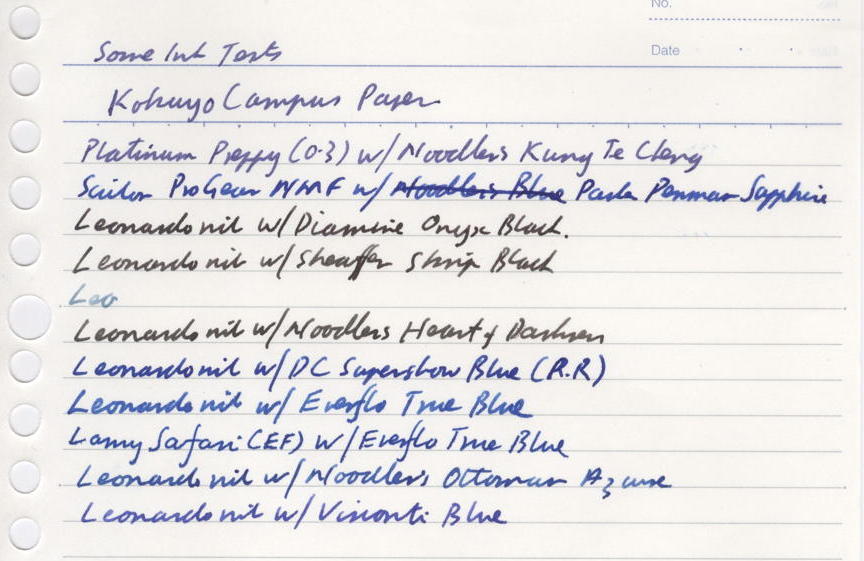 No.
Date
Some Ink Tests
Kokuyo Campus Paper
Platinum Preppy (0.3) w/ Noodlers Kung Te Cheng
Sailor ProGear NMF w/ Noodlers Blue Parker Penman Sapphire
Leonardo nib w/ Diamine Onyx Black.
Leonardo nib w/ Sheaffer Skrip Black
Leo
Leonardo nib w/ Noodlers Heart of Darkness
Leonardo nib w/ DC Supershow Blue (R.R)
Leonardo nib w/ Everflo True Blue
Lamy Safari (EF) w/ Everflo True Blue
Leonardo nib w/ Noodlers Ottoman Azure
Leonardo nib w/ Visconti Blue